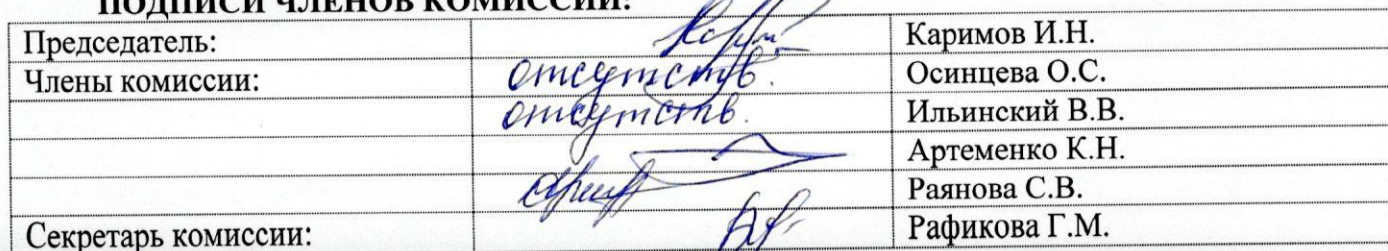 ПОДПИСИ ЧЛЕНОВ КОМИССИИ:
Председатель: Каримов И.Н.
Члены комиссии: отсутств. Осинцева О.С.
отсутств. Ильинский В.В.
Артеменко К.Н.
Раянова С.В.
Секретарь комиссии: Рафикова Г.М.